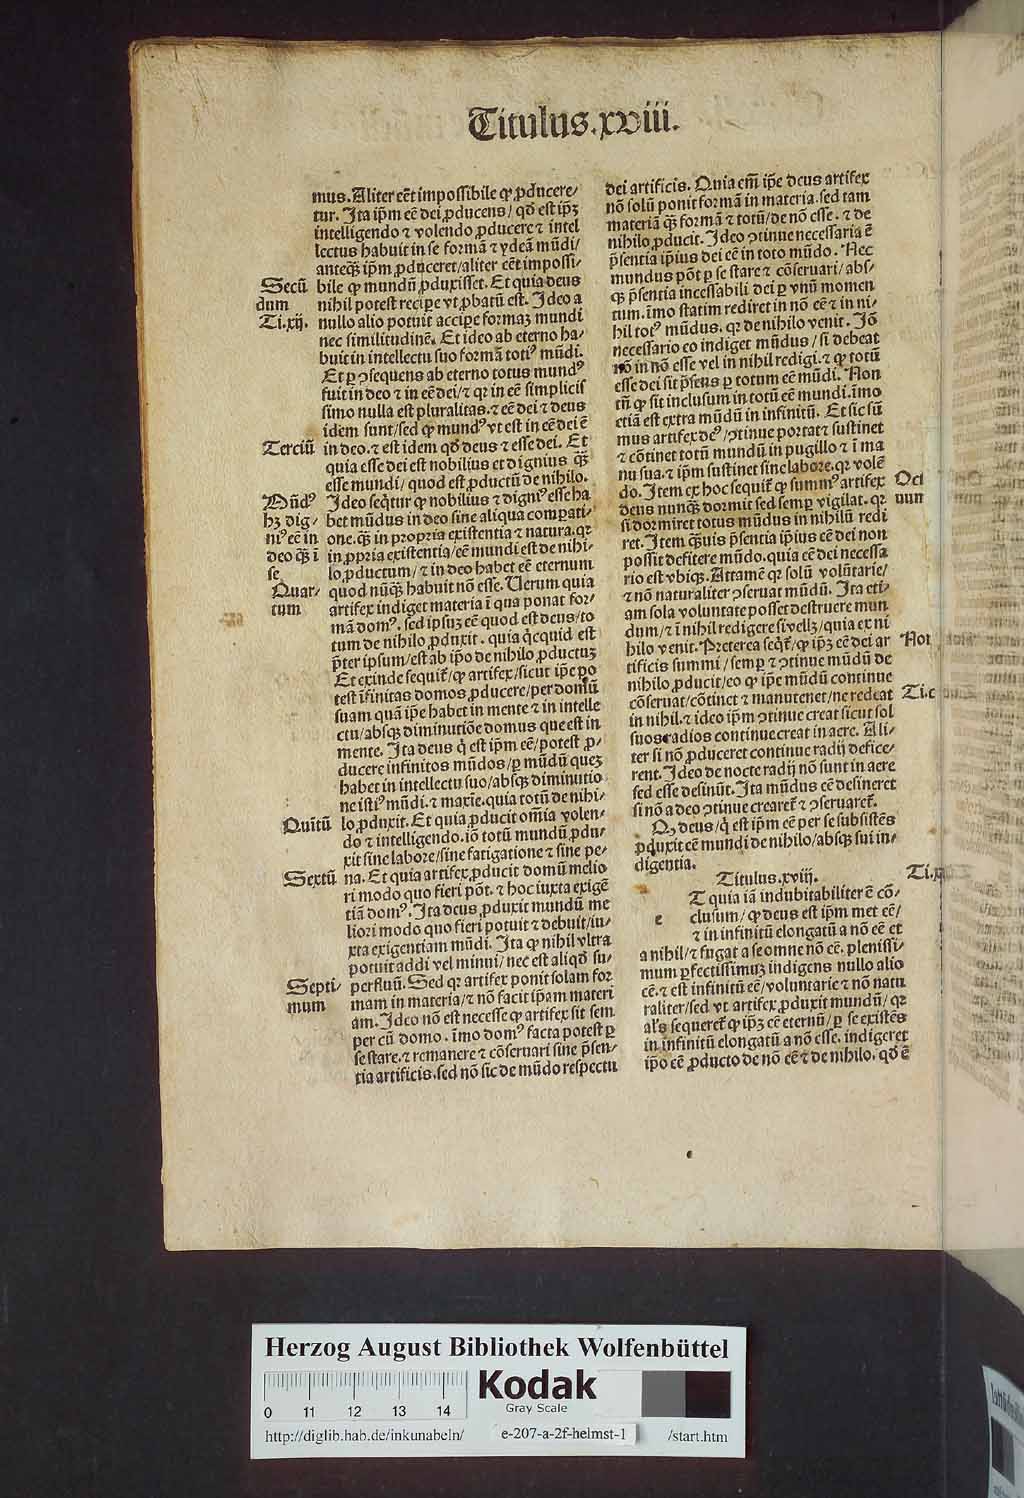 Titulus.xviii.
mus. Aliter eēt impossibile ꝙ ꝓducere/
tur. Ita ip̄m eē dei ꝓducens/ qd̄ est ip̄ꝫ
intelligendo ⁊ volendo ꝓducere ⁊ intel
lectus habuit in se formā ⁊ ydeā mūdi/
anteqꝫ̄ ip̄m ꝓduceret/aliter eēt impossi/
Secū
dum
Ti.xij.
bile ꝙ mundū ꝓduxisset. Et quia deus
nihil potest reciꝑe vt ꝓbatū est. Ideo a
nullo alio potuit acciꝑe formaꝫ mundi
nec similitudinē. Et ideo ab eterno ha/
buit in intellectu suo formā totiꝰ mūdi.
Et ꝑ ꝯsequens ab eterno totus mundꝰ
fuit in deo ⁊ in eē dei/⁊ qꝛ in eē simplicis
simo nulla est pluralitas.⁊ eē dei ⁊ deus
idem sunt/sed ꝙ mundꝰ vt est in eē dei ē
Terciū
in deo.⁊ est idem qd̄ deus ⁊ esse dei. Et
quia esse dei est nobilius et dignius qꝫ̄
esse mundi/ quod est ꝓductū de nihilo.
Mūdꝰ
hꝫ dig/
niꝰ eē in
deo qꝫ̄ ī
se
Ideo seq̄tur ꝙ nobilius ⁊ digniꝰ esse ha
bet mūdus in deo sine aliqua comꝑati/
one.qꝫ̄ in propria existentia ⁊ natura.qꝛ
in ꝓpria existentia/eē mundi est de nihi/
lo ꝓductum/⁊ in deo habet eē eternum
Quar/
tum
quod nūqꝫ̄ habuit nō esse. Verum quia
artifex indiget materia ī qua ponat for/
mā domꝰ. sed ipsuꝫ eē quod est deus/to
tum de nihilo ꝓduxit. quia q̇cquid est
p̄ter ipsum/est ab ip̄o de nihilo ꝓductuꝫ
Et exinde sequit̄/ꝙ artifex/sicut ip̄e po
test īfinitas domos ꝓducere/per domū
suam quā ip̄e habet in mente ⁊ in intelle
ctu/absqꝫ diminutiōe domus que est in
mente. Ita deus q̇ est ip̄m eē/potest ꝓ/
ducere infinitos mūdos/ꝑ mūdū queꝫ
habet in intellectu suo/absqꝫ diminutio
ne istiꝰ mūdi.⁊ maxie.quia totū de nihi/
Quītū
lo ꝓduxit. Et quia ꝓducit om̄ia volen/
do ⁊ intelligendo.iō totū mundū ꝓdu/
xit sine labore/sine fatigatione ⁊ sine pe/
Sextū
na. Et quia artifex ꝓducit domū melio
ri modo quo fieri pōt.⁊ hoc iuxta exigē
tiā domꝰ. Ita deus ꝓduxit mundū me
liori modo quo fieri potuit ⁊ debuit/iu/
xta exigentiam mūdi. Ita ꝙ nihil vltra
potuit addi vel minui/nec est aliqd̄ su/
Septi/
mum
perfluū. Sed qꝛ artifex ponit solam for
mam in materia/⁊ nō facit ip̄am materi
am. Ideo nō est necesse ꝙ artifex sit sem
per cū domo. īmo domꝰ facta potest ꝑ
se stare.⁊ remanere ⁊ cōseruari sine p̄sen/
tia artificis.sed nō sic de mūdo respectu
dei artificis. Quia em̄ ip̄e deus artifex
nō solū ponit formā in materia.sed tam
materiā qꝫ̄ formā ⁊ totū/de nō esse.⁊ de
nihilo ꝓducit. Ideo ꝯtinue necessaria ē
p̄sentia ip̄ius dei eē in toto mūdo. Nec
mundus pōt ꝑ se stare ⁊ cōseruari/abs/
qꝫ p̄sentia incessabili dei ꝑ vnū momen
tum.īmo statim rediret in nō eē ⁊ in ni/
hil totꝰ mūdus. qꝛ de nihilo venit. Iō
necessario eo indiget mūdus/ si debeat
nō in nō esse vel in nihil redigi.⁊ ꝙ totū
esse dei sit p̄sens ꝑ totum eē mūdi. Non
tn̄ ꝙ sit inclusum in totū eē mundi.īmo
etiā est extra mūdū in infinitū. Et sic sū
mus artifex deꝰ/ꝯtinue portat ⁊ sustinet
⁊ cōtinet totū mundū in pugillo ⁊ ī ma
nu sua.⁊ ip̄m sustinet sine labore.qꝛ volē
do. Item ex hoc sequit̄ ꝙ summꝰ artifex
Octa
uum
deus nunqꝫ̄ dormit sed semꝑ vigilat.qꝛ
si dormiret totus mūdus in nihilū redi
ret. Item qꝫ̄uis p̄sentia ip̄ius eē dei non
possit deficere mūdo.quia eē dei necessa
rio est vbiqꝫ. Attamē qꝛ solū volūtarie/
⁊ nō naturaliter ꝯseruat mūdū. Ita eti/
am sola voluntate posset destruere mun
dum/⁊ ī nihil redigere si vellꝫ/quia ex ni
Not
hilo venit. Preterea seq̄t̄/ ꝙ ip̄ꝫ eē dei ar
tificis summi/ semꝑ ⁊ ꝯtinue mūdū de
nihilo ꝓducit/eo ꝙ ip̄e mūdū continue
Ti.c
cōseruat/cōtinet ⁊ manutenet/ne redeat
in nihil.⁊ ideo ip̄m ꝯtinue creat sicut sol
suos radios continue creat in aere. Ali/
ter si nō ꝓduceret continue radij defice/
rent. Ideo de nocte radij nō sunt in aere
sed esse desinūt. Ita mūdus eē desineret
si nō a deo ꝯtinue crearet̄ ⁊ ꝯseruaret̄.
Qꝫ deus/q̇ est ip̄m eē per se subsistēs
ꝓduxit eē mundi de nihilo/absqꝫ sui in/
digentia.
Titulus.xviij.
Ti.x
e
T quia iā indubitabiliter ē cō/
clusum/ ꝙ deus est ip̄m met eē/
⁊ in infinitū elongatū a nō eē et
a nihil/⁊ fugat a se omne nō eē. plenissi/
mum ꝑfectissimuꝫ indigens nullo alio
eē.⁊ est infinitū eē/voluntarie ⁊ nō natu
raliter/sed vt artifex ꝓduxit mundū/ qꝛ
al's sequeret̄ ꝙ ip̄ꝫ eē eternū/ ꝑ se existēs
in infinitū elongatū a nō esse. indigeret
ip̄o eē ꝓducto de nō eē ⁊ de nihilo. qd̄ ē
Herzog August Bibliothek Wolfenbüttel
0 11 12 13 14
Kodak
Gray Scale
http://diglib.hab.de/inkunabeln/ e-207-a-2f-helmst-1 /start.htm